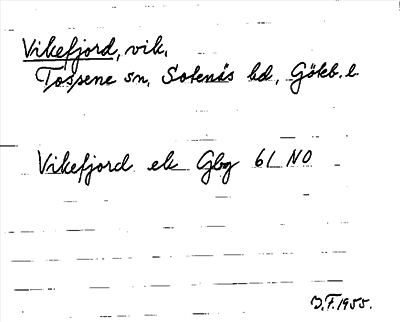 Vikefjord, vik,
Tossene sn, Sotenäs hd, Göteb. l.
Vikefjord ek Gbg 61 NO
D.F. 1955.